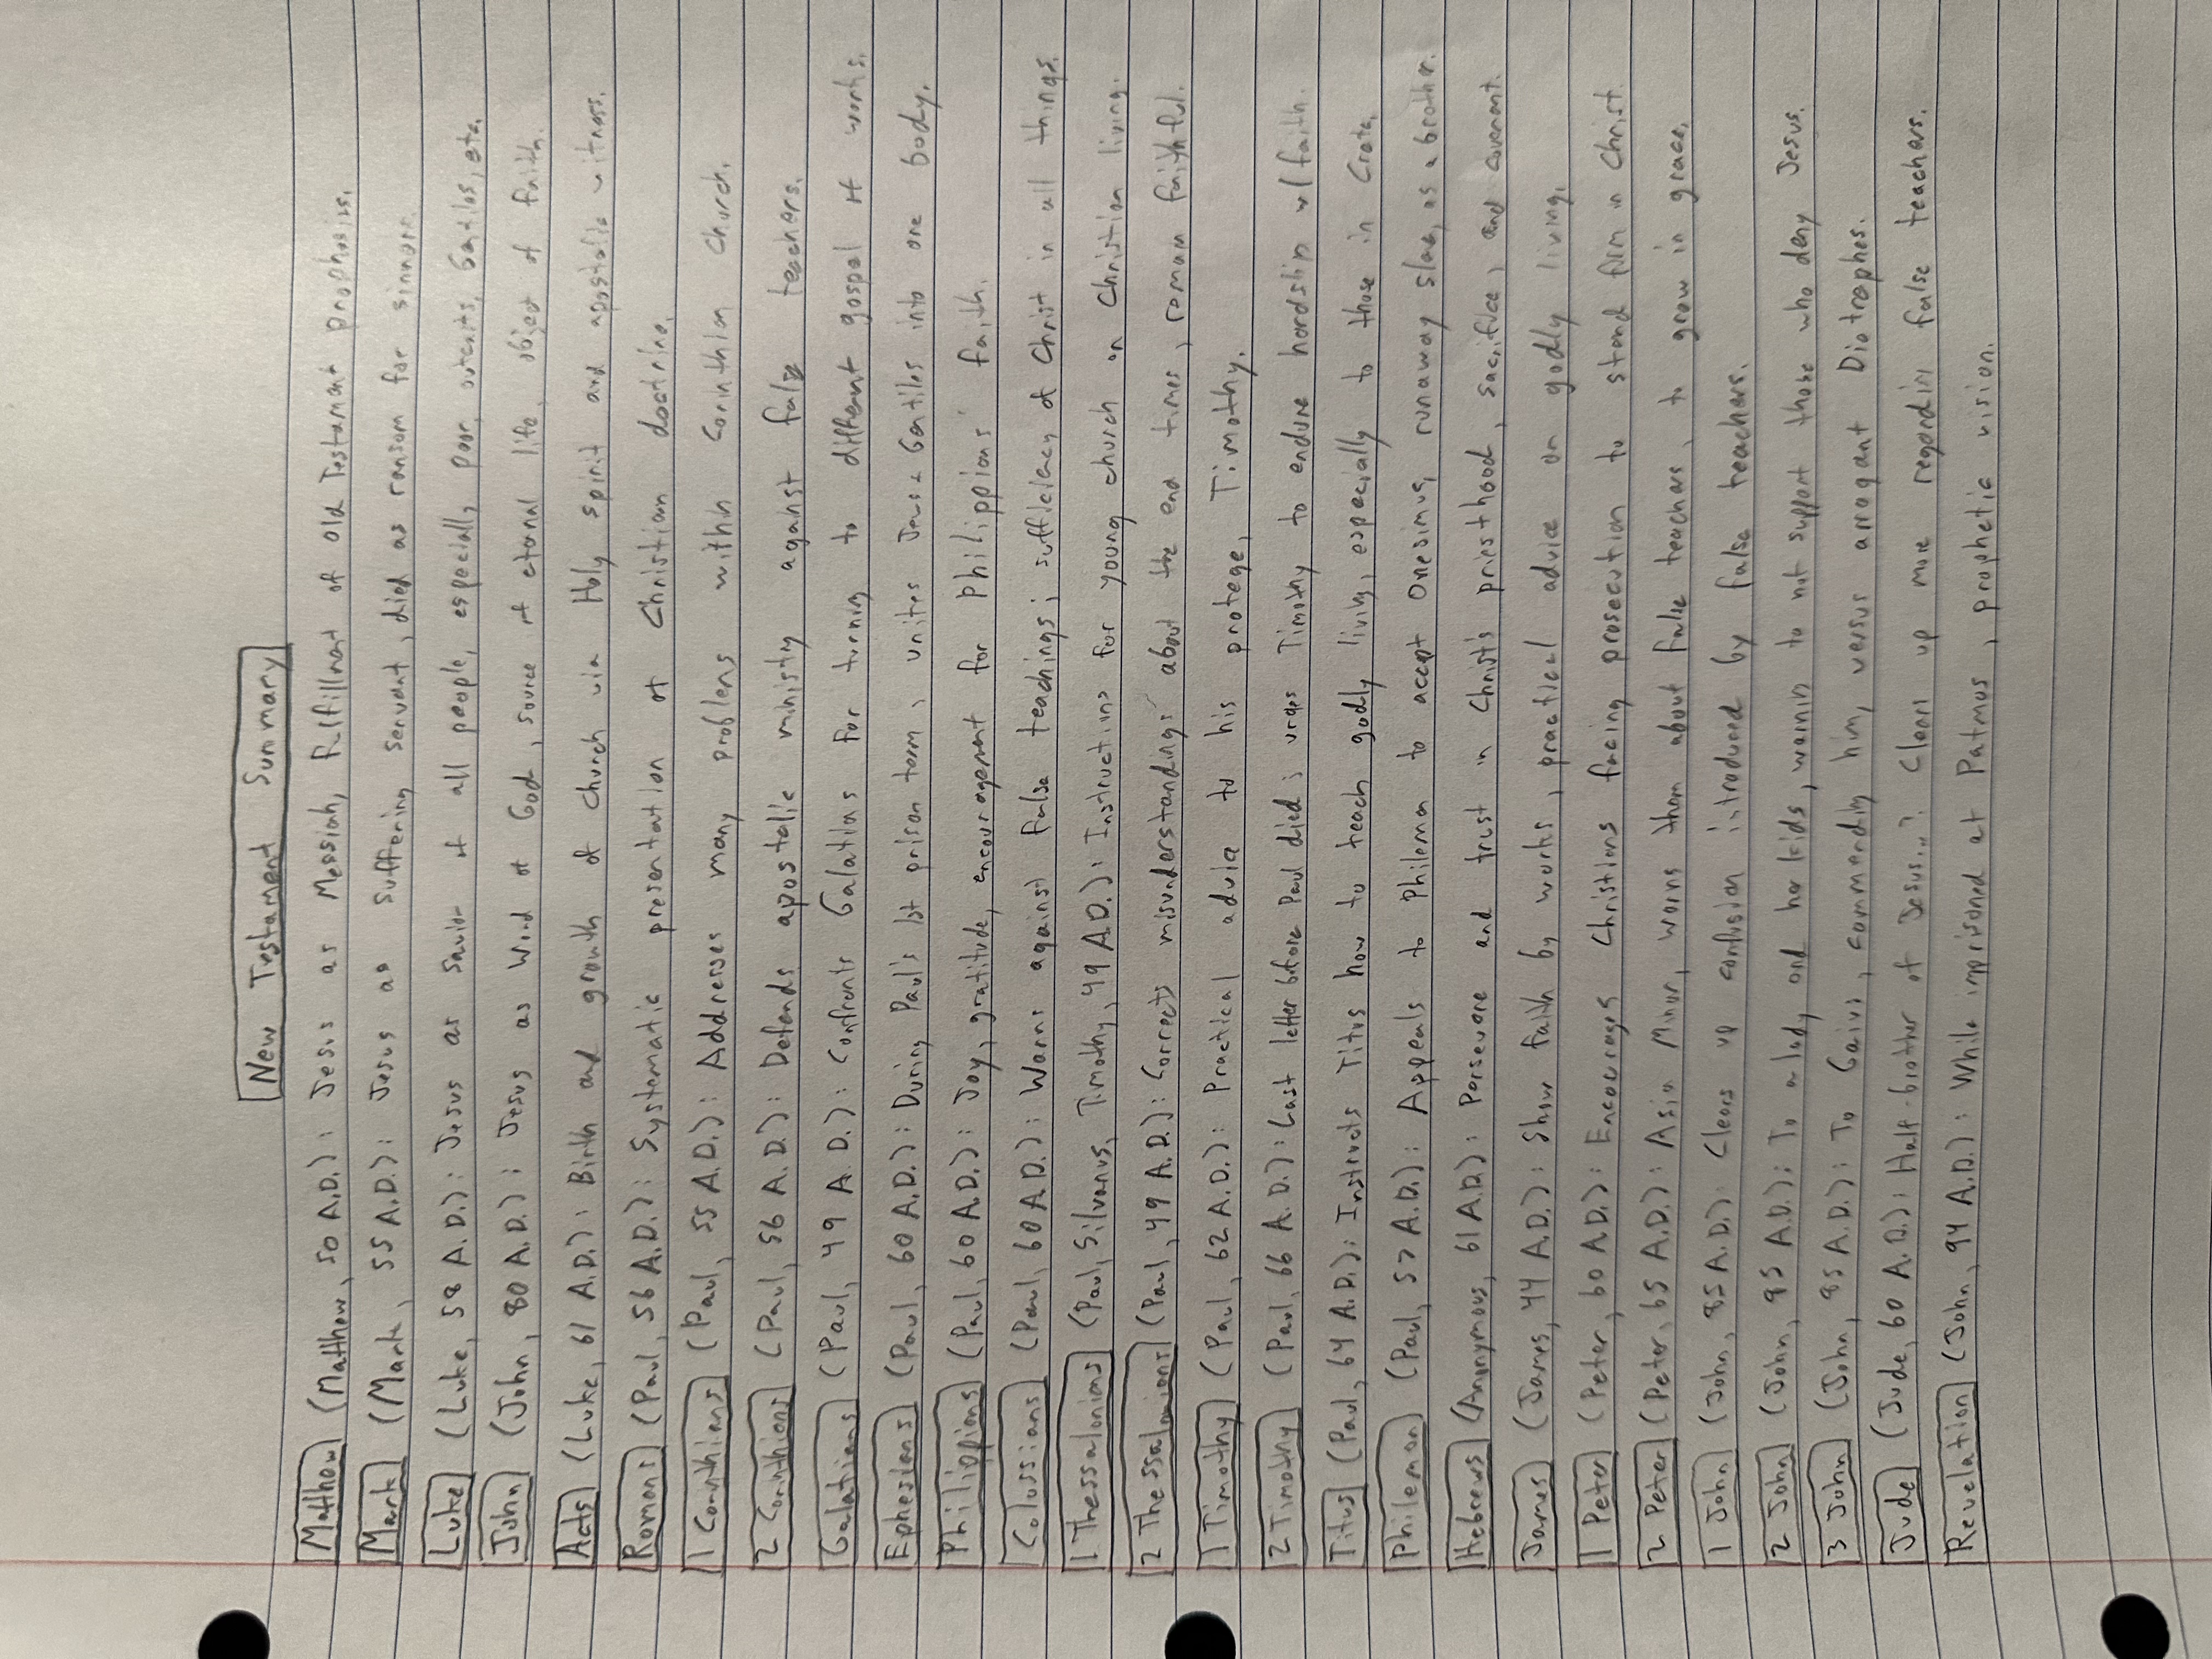 New Testament Summary
Matthew (Matthew, 50 A.D.): Jesus as Messiah, fulfillment of Old Testament prophesies.
Mark (Mark, 55 A.D.): Jesus as suffering servant, died as ransom for sinners.
Luke (Luke, 58 A.D.): Jesus as savior of all people, especially poor, outcasts, Gentiles, etc.
John (John, 80 A.D.): Jesus as Word of God, source of eternal life, object of faith.
Acts (Luke, 61 A.D.): Birth and growth of church via Holy Spirit and apostolic witness.
Romans (Paul, 56 A.D.): Systematic presentation of Christian doctrine.
1 Corinthians (Paul, 55 A.D.): Addresses many problems within Corinthian church.
2 Corinthians (Paul, 56 A.D.): Defends apostolic ministry against false teachers.
Galatians (Paul, 49 A.D.): Confronts Galatians for turning to different gospel of works.
Ephesians (Paul, 60 A.D.): During Paul's 1st prison term, unites Jews & Gentiles into one body.
Philippians (Paul, 60 A.D.): Joy, gratitude, encouragement for Philippians' faith.
Colossians (Paul, 60 A.D.): Warns against false teachings; sufficiency of Christ in all things.
1 Thessalonians (Paul, Silvanus, Timothy, 49 A.D.): Instructions for young church on Christian living.
2 Thessalonians (Paul, 49 A.D.): Corrects misunderstandings about the end times, remain faithful.
1 Timothy (Paul, 62 A.D.): Practical advice to his protege, Timothy.
2 Timothy (Paul, 66 A.D.): Last letter before Paul died; urges Timothy to endure hardship w/ faith.
Titus (Paul, 64 A.D.): Instructs Titus how to teach godly living, especially to those in Crete.
Philemon (Paul, 57 A.D.): Appeals to Philemon to accept Onesimus, runaway slave, as a brother.
Hebrews (Anonymous, 61 A.D.): Persevere and trust in Christ's priesthood, sacrifice, and covenant.
James (James, 44 A.D.): Show faith by works, practical advice on godly living.
1 Peter (Peter, 60 A.D.): Encourages Christians facing prosecution to stand firm in Christ.
2 Peter (Peter, 65 A.D.): Asia Minor, warns them about false teachers, to grow in grace.
1 John (John, 85 A.D.): Clears up confusion introduced by false teachers.
2 John (John, 85 A.D.): To a lady and her kids, warnin to not support those who deny Jesus.
3 John (John, 85 A.D.): To Gaius, commendin him, versus arrogant Diotrephes.
Jude (Jude, 60 A.D.): Half-brother of Jesus..? Clears up more regardin false teachers.
Revelation (John, 94 A.D.): While imprisoned at Patmos, prophetic vision.